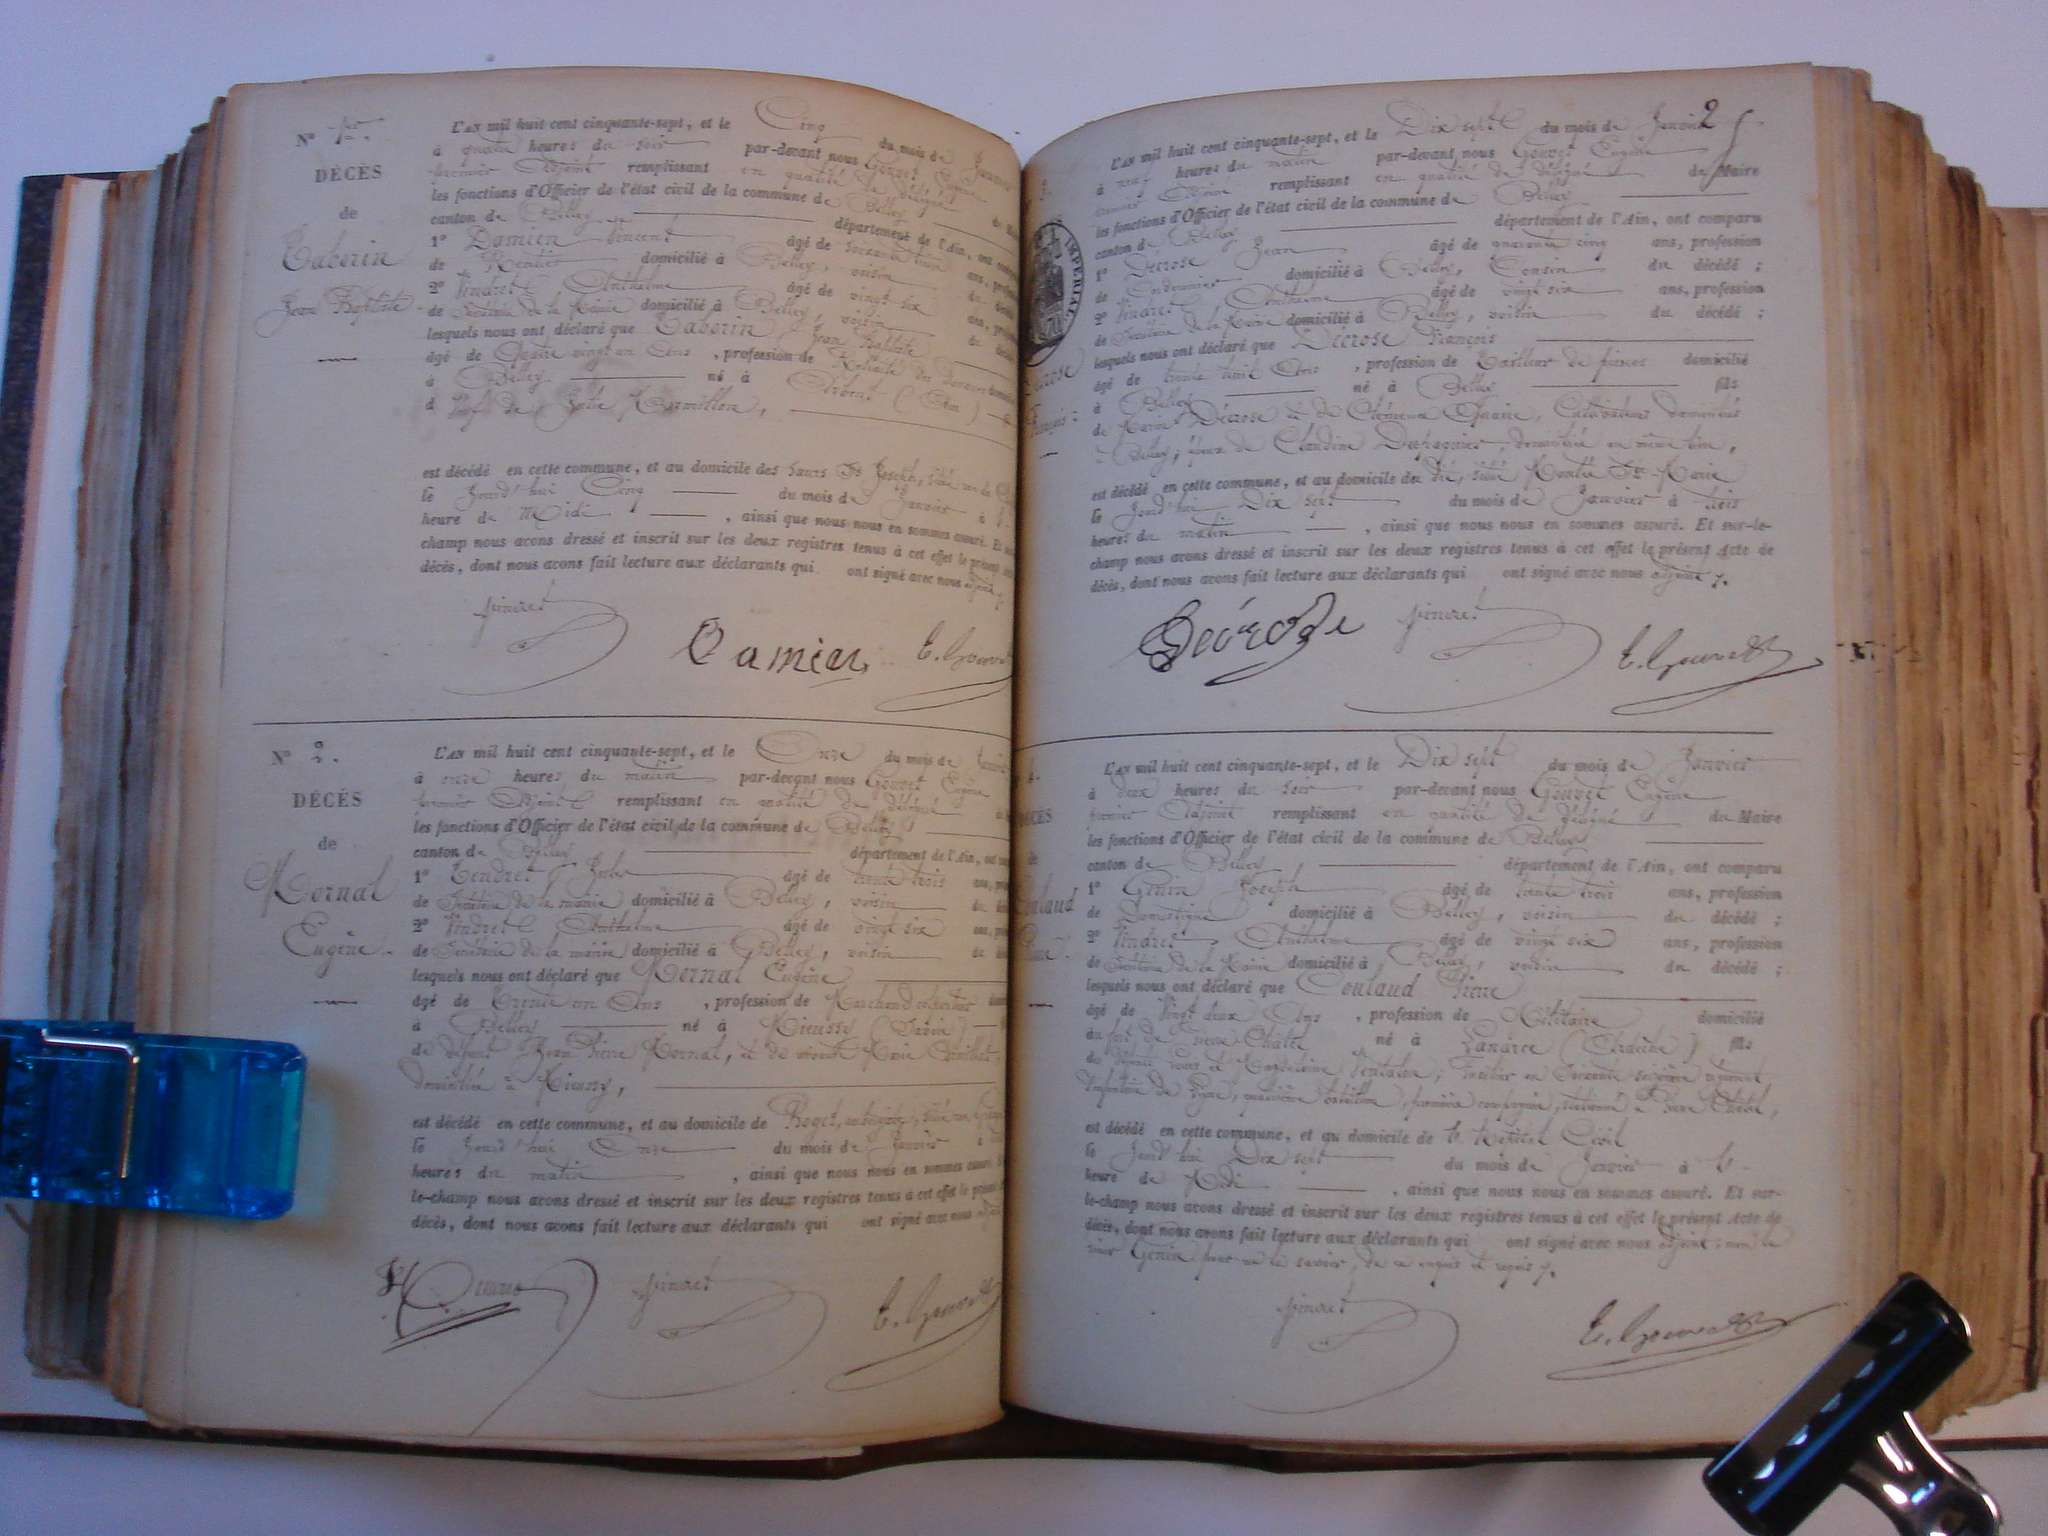 N° 1er.
DÉCÈS
de
Taberin
Jean Baptiste
L'AN mil huit cent cinquante-sept, et le Cinq du mois de Janvier
à quatre heures du soir par-devant nous Gouvet Eugène
premier Adjoint remplissant en qualité de délégué
les fonctions d'Officier de l'état civil de la commune de Belley
canton de Belley département de l'Ain, ont
1° Damien Vincent âgé de soixante ans,
de domicilié à Belley, voisin du
2° Vindret Anthelme âgé de vingt six ans,
de Secrétaire de la Mairie domicilié à Belley, voisin du
lesquels nous ont déclaré que Taberin Jean Baptiste
âgé de Quatre vingt un Ans, profession de Retraité des
à Belley né à Arbent (Ain)
Vf. de Julie
est décédé en cette commune, et au domicile des Sœurs St Joseph,
le Jourd'hui Cinq du mois de Janvier à
heure de Midi, ainsi que nous nous en sommes assuré. Et
champ nous avons dressé et inscrit sur les deux registres tenus à cet effet le présent
décès, dont nous avons fait lecture aux déclarants qui ont signé avec nous adjoint
Vindret Damien E. Gouvet
N° 2.
DÉCÈS
de
Mornal
Eugène
L'AN mil huit cent cinquante-sept, et le Onze du mois de Janvier
à onze heures du matin par-devant nous Gouvet Eugène
premier Adjoint remplissant en qualité de délégué
les fonctions d'Officier de l'état civil de la commune de Belley
canton de Belley département de l'Ain, ont
1° Tendret Jules âgé de trente trois ans,
de Secrétaire de la mairie domicilié à Belley, voisin du
2° Vindret Anthelme âgé de vingt six ans,
de Secrétaire de la mairie domicilié à Belley, voisin de
lesquels nous ont déclaré que Mornal Eugène
âgé de Trente un Ans, profession de Marchand colporteur
à Belley né à Mieussy (Savoie)
de défunt Jean Pierre Mornal, et de vivante Marie
domiciliée à Mieussy,
est décédé en cette commune, et au domicile de Roget, aubergiste,
le Jourd'hui Onze du mois de Janvier à
heures du matin, ainsi que nous nous en sommes assuré.
le-champ nous avons dressé et inscrit sur les deux registres tenus à cet effet le présent
décès, dont nous avons fait lecture aux déclarants qui ont signé avec nous
Vindret E. Gouvet
2
3.
IMPÉRIAL
Decrose
François
L'AN mil huit cent cinquante-sept, et le Dix sept du mois de Janvier
à neuf heures du matin par-devant nous Gouvet Eugène
premier Adjoint remplissant en qualité de délégué du Maire
les fonctions d'Officier de l'état civil de la commune de Belley
canton de Belley département de l'Ain, ont comparu
1° Decrose Jean âgé de quarante cinq ans, profession
de Cordonnier domicilié à Belley, Cousin du décédé ;
2° Vindret Anthelme âgé de vingt six ans, profession
de Secrétaire de la Mairie domicilié à Belley, voisin du décédé ;
lesquels nous ont déclaré que Decrose François
âgé de trente huit Ans, profession de Tailleur de pierres domicilié
à Belley né à Belley fils
de Decrose et de Clémence Cultivateurs domiciliés
à Belley ; époux de Claudine domiciliée au même lieu,
est décédé en cette commune, et au domicile du dit, situé Montée Ste Marie
le Jourd'hui Dix sept du mois de Janvier à trois
heures du matin, ainsi que nous nous en sommes assuré. Et sur-le-
champ nous avons dressé et inscrit sur les deux registres tenus à cet effet le présent Acte de
décès, dont nous avons fait lecture aux déclarants qui ont signé avec nous adjoint.
Décroze Vindret E. Gouvet
4.
DÉCÈS
de
Coulaud
Pierre
L'AN mil huit cent cinquante-sept, et le Dix sept du mois de Janvier
à deux heures du soir par-devant nous Gouvet Eugène
premier Adjoint remplissant en qualité de délégué du Maire
les fonctions d'Officier de l'état civil de la commune de Belley
canton de Belley, département de l'Ain, ont comparu
1° Genin Joseph âgé de trente trois ans, profession
de Domestique domicilié à Belley, voisin du décédé ;
2° Vindret Anthelme âgé de vingt six ans, profession
de Secrétaire de la Mairie domicilié à Belley, voisin du décédé ;
lesquels nous ont déclaré que Coulaud Pierre
âgé de Vingt deux Ans, profession de Militaire domicilié
au fort de Pierre-Chatel né à Lanarce (Ardèche) fils
de Louis et Magdeleine ; fusilier au Soixante seizième régiment
Infanterie de Ligne, quatrième bataillon, première compagnie, stationné à Pierre Châtel,
est décédé en cette commune, et au domicile de l'Hôpital Civil
le Jourd'hui Dix sept du mois de Janvier à l'
heure de Midi, ainsi que nous nous en sommes assuré. Et sur-
le-champ nous avons dressé et inscrit sur les deux registres tenus à cet effet le présent Acte de
décès, dont nous avons fait lecture aux déclarants qui ont signé avec nous adjoint ; non le
sieur Genin pour ne le savoir, de ce enquis et requis.
Vindret E. Gouvet